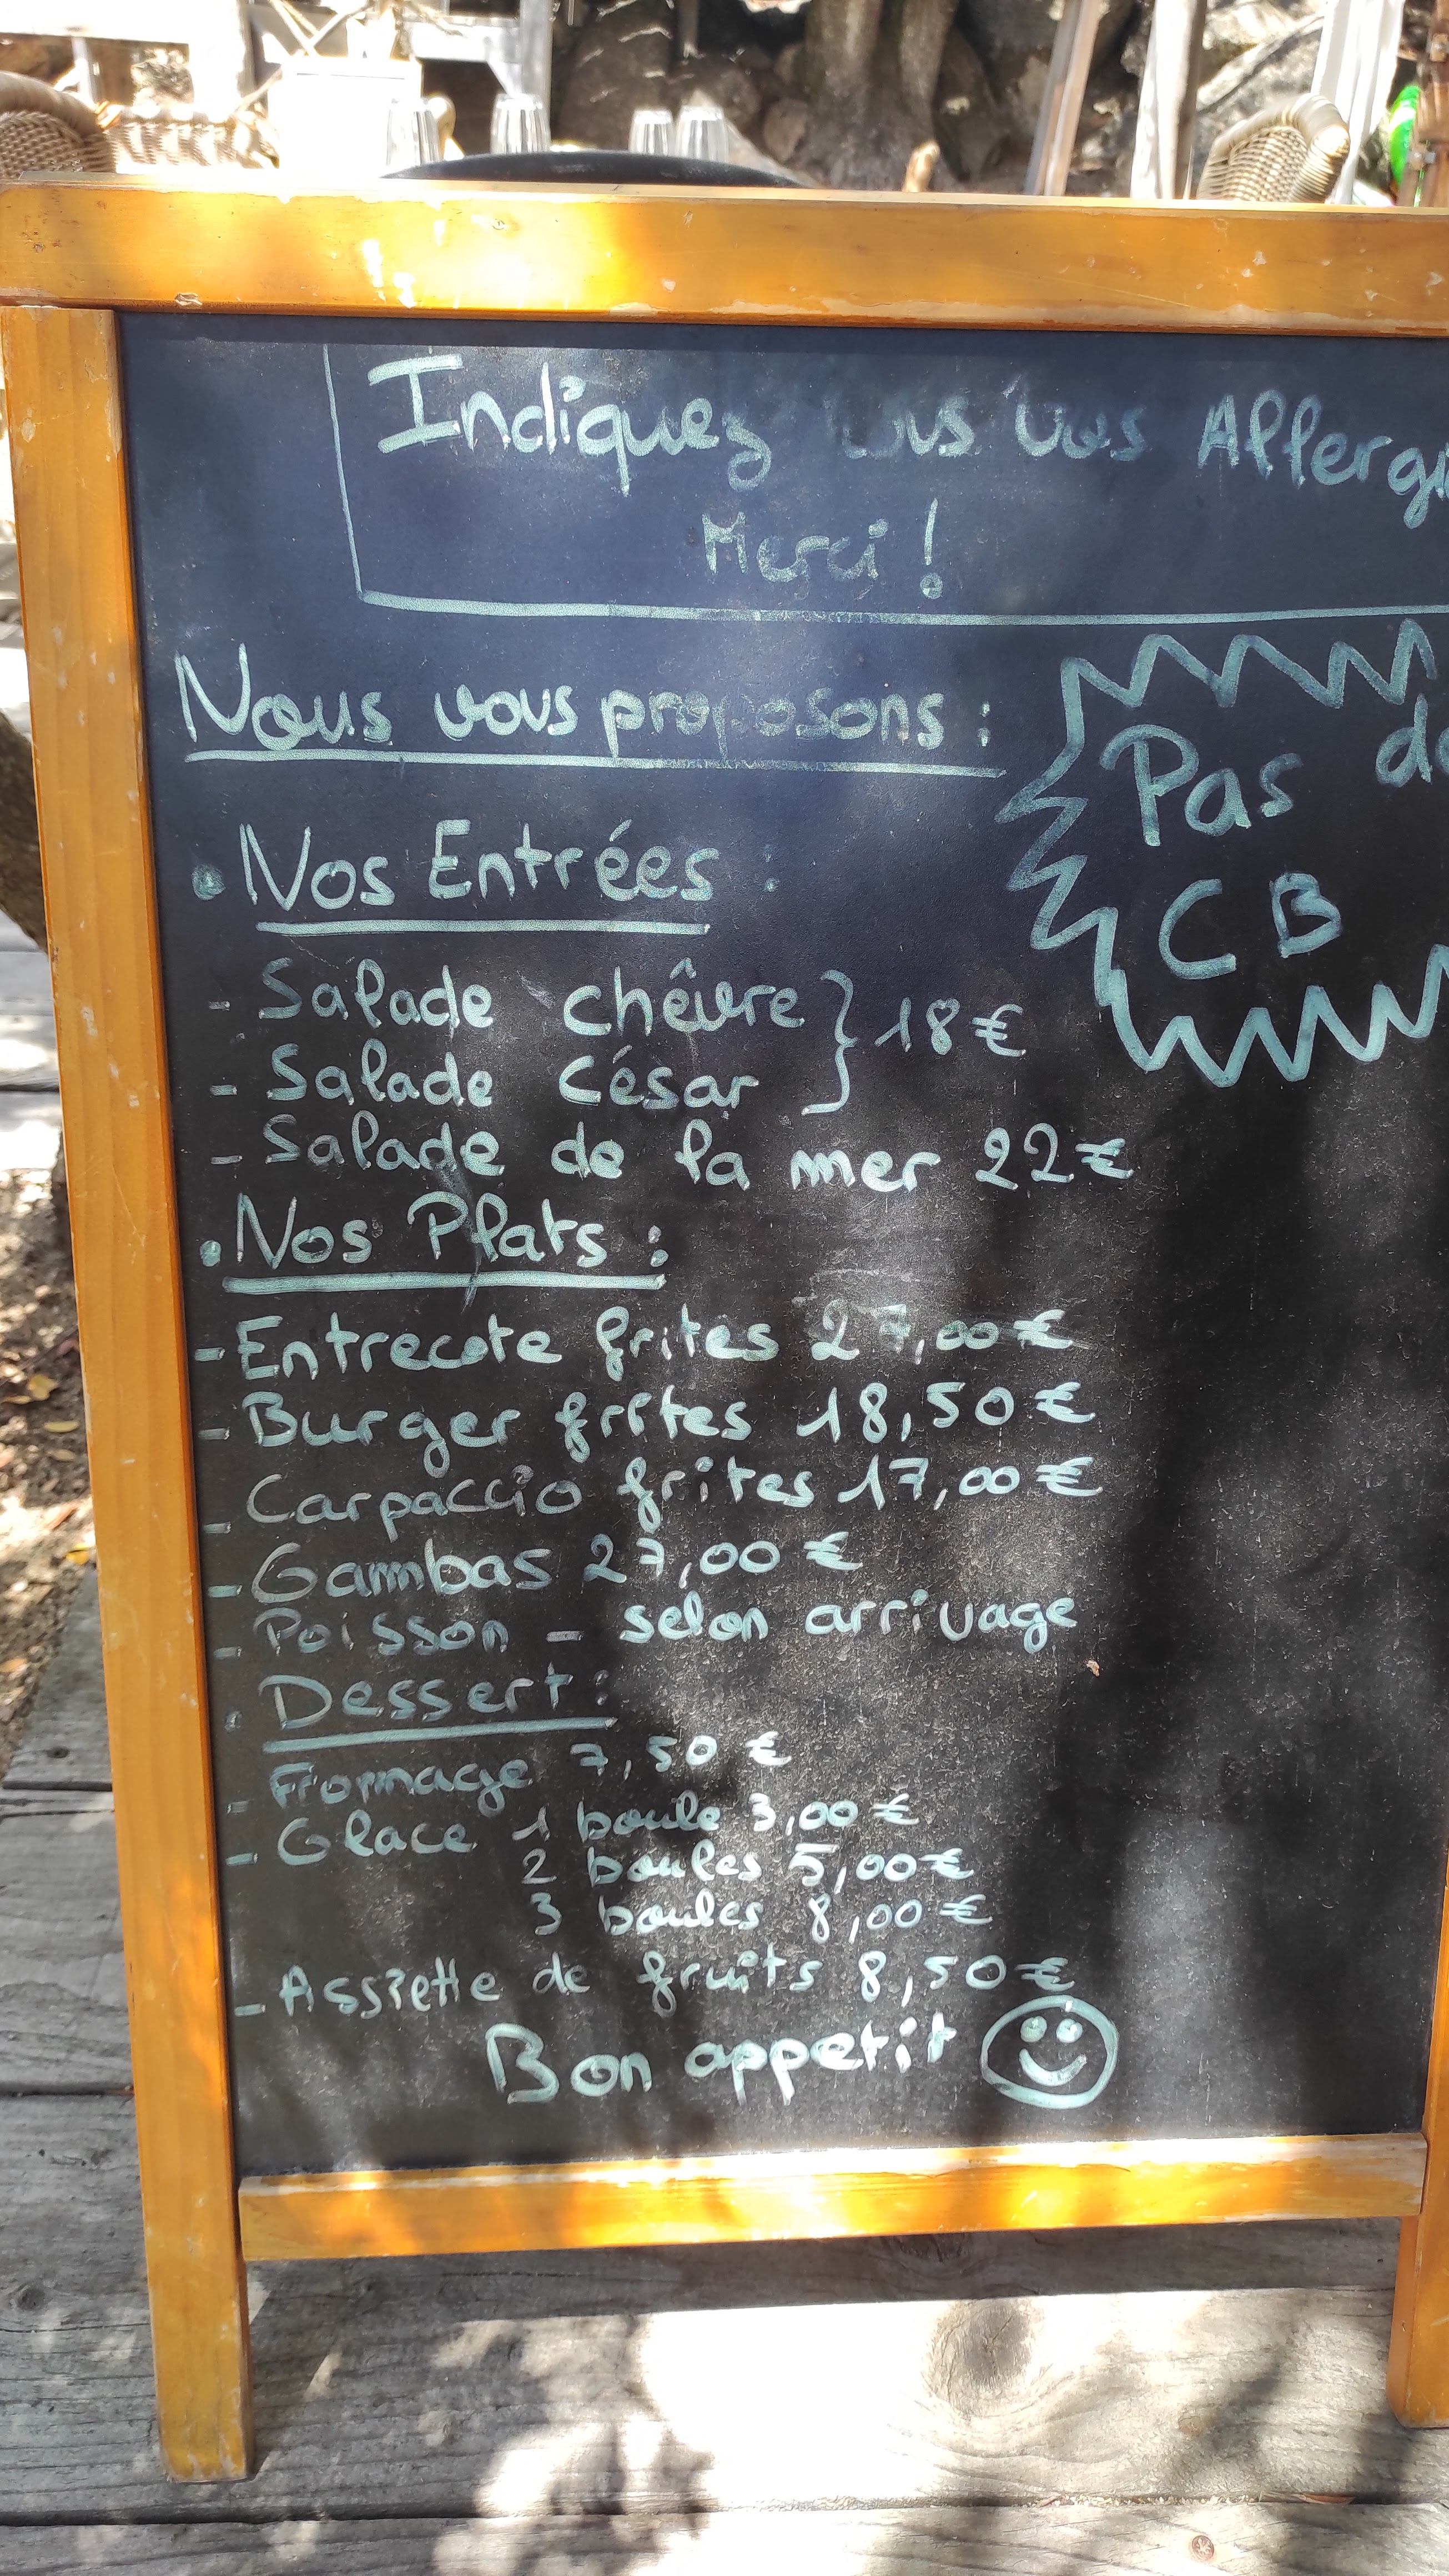 Indiquez nous vos Allergi
Merci !
Nous vous proposons :
Pas de
CB
. Nos Entrées :
- Salade chêvre } 18€
- Salade César
- Salade de la mer 22€
. Nos Plats :
- Entrecote frites 27,00€
- Burger frites 18,50€
- Carpaccio frites 17,00€
- Gambas 27,00€
- Poisson - selon arrivage
. Dessert :
- Fromage 7,50€
- Glace 1 boule 3,00€
2 boules 5,00€
3 boules 8,00€
- Assiette de fruits 8,50€
Bon appetit